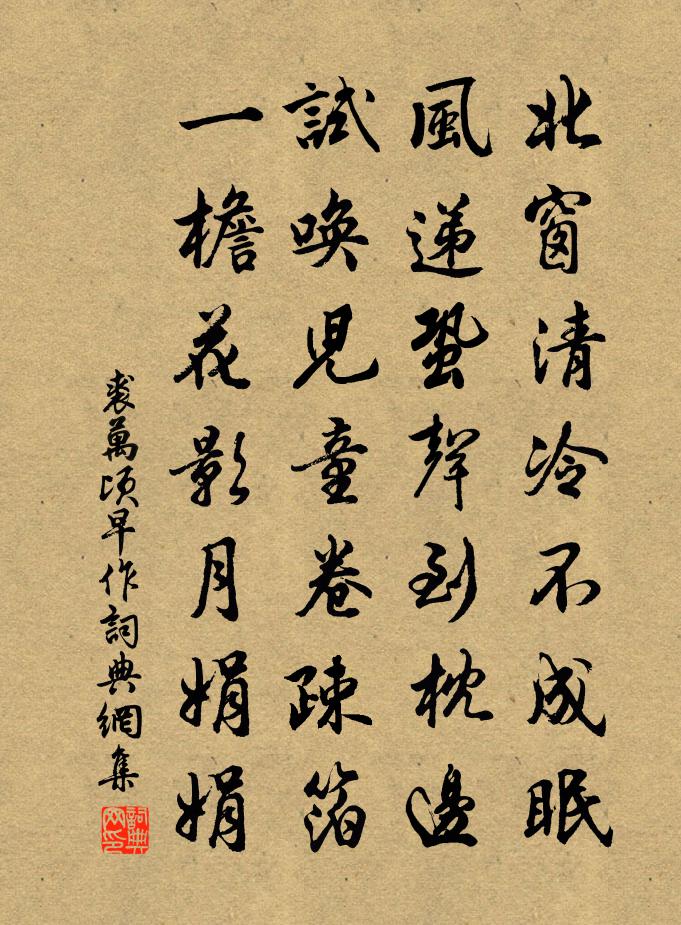 北窗清冷不成眠
風遞蛩聲到枕邊
試喚兒童卷疎箔
一檐花影月娟娟
裘萬頃早作詞典網集
詞典網印